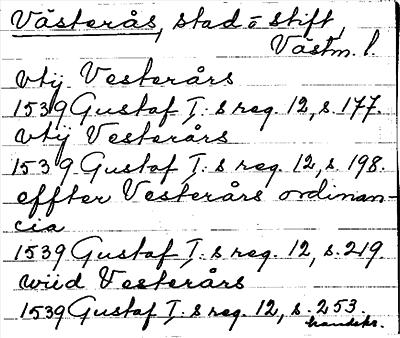 Västerås, stad o stift,
Västm. l.
vtij Vesterårs
1539 Gustaf I:s reg. 12, s. 177.
vtij Vesterårs
1539 Gustaf I:s reg. 12, s. 198.
effter Vesterårs ordinan-
cia
1539 Gustaf I:s reg. 12, s. 219.
wiid Vesterårs
1539 Gustaf I:s reg. 12, s. 253.